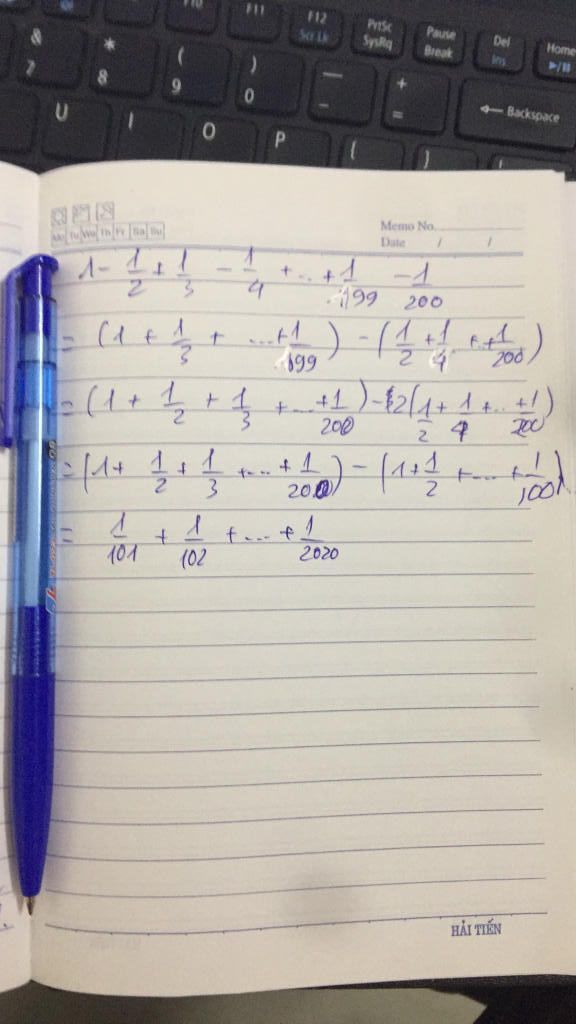 F10 F11 F12 Scr Lk PrtSc SysRq Pause Break Del Ins Home
& 7 * 8 ( 9 ) 0 — - + = ← Backspace
U I O P { }
Mo Tu We Th Fr Sa Su
Memo No.
Date / /
1 - 1/2 + 1/3 - 1/4 + ... + 1/199 - 1/200
= (1 + 1/3 + ... + 1/199) - (1/2 + 1/4 + ... + 1/200)
= (1 + 1/2 + 1/3 + ... + 1/200) - 2(1/2 + 1/4 + ... + 1/200)
= (1 + 1/2 + 1/3 + ... + 1/200) - (1 + 1/2 + ... + 1/100)
= 1/101 + 1/102 + ... + 1/2020
HẢI TIẾN